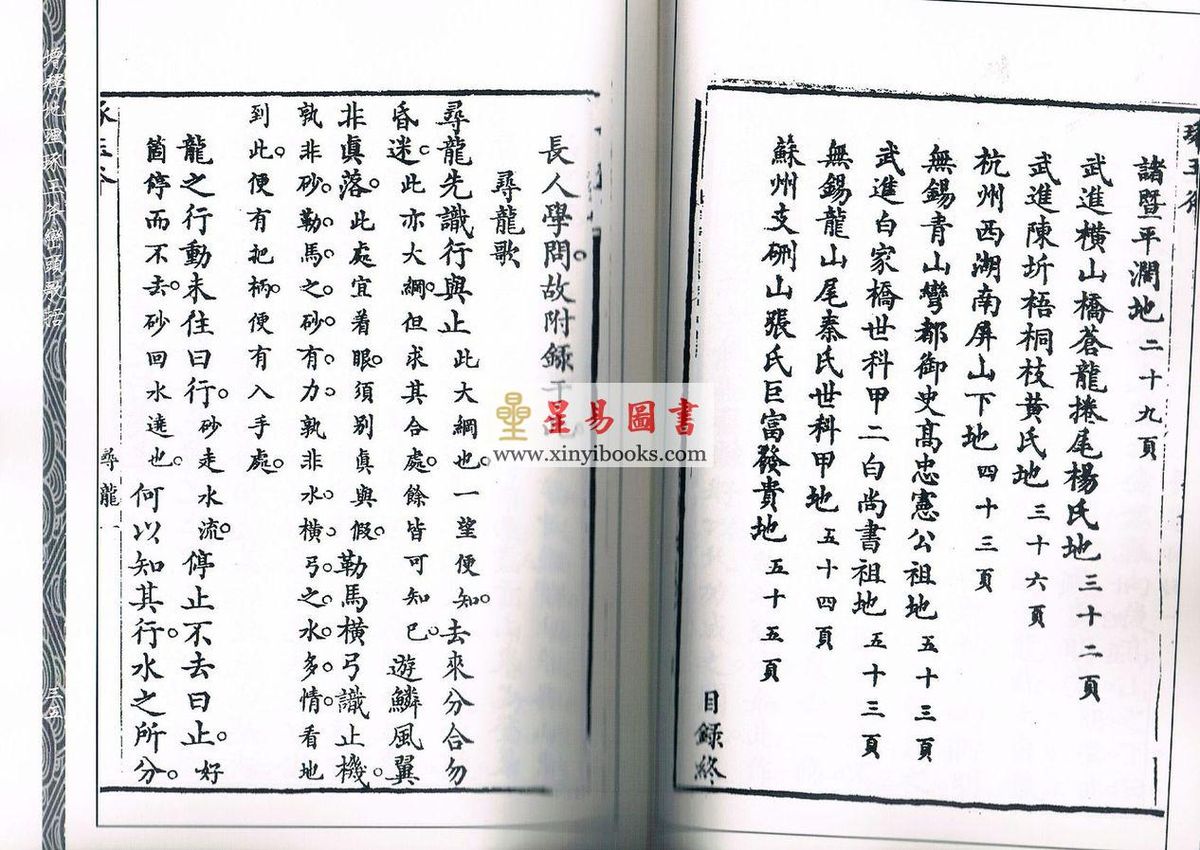 諸暨平濶地二十九頁
武進横山橋蒼龍捲尾楊氏地三十二頁
武進陳圻梧桐枝黄氏地三十六頁
杭州西湖南屏山下地四十三頁
無錫青山彎都御史髙忠憲公祖地五十三頁
武進白家橋世科甲二白尚書祖地五十三頁
無錫龍山尾秦氏世科甲地五十四頁
蘇州支硎山張氏巨富發貴地五十五頁
目録終
長人學問。故附録于
尋龍歌
尋龍先識行與止此大綱也。一望便知。去來分合勿
昏迷。此亦大綱。但求其合處。餘皆可知已。遊鱗風翼
非眞落。此處宜着眼。須别眞與假。勒馬橫弓識止機。
孰非砂。勒馬之砂有力。孰非水。橫弓之水。多情。看地
到此。便有把柄。便有入手處。
龍之行動未住曰行。砂走水流。停止不去曰止。好
箇停而不去。砂回水遶也。何以知其行。水之所分。
尋龍 一
星易圖書
www.xinyibooks.com